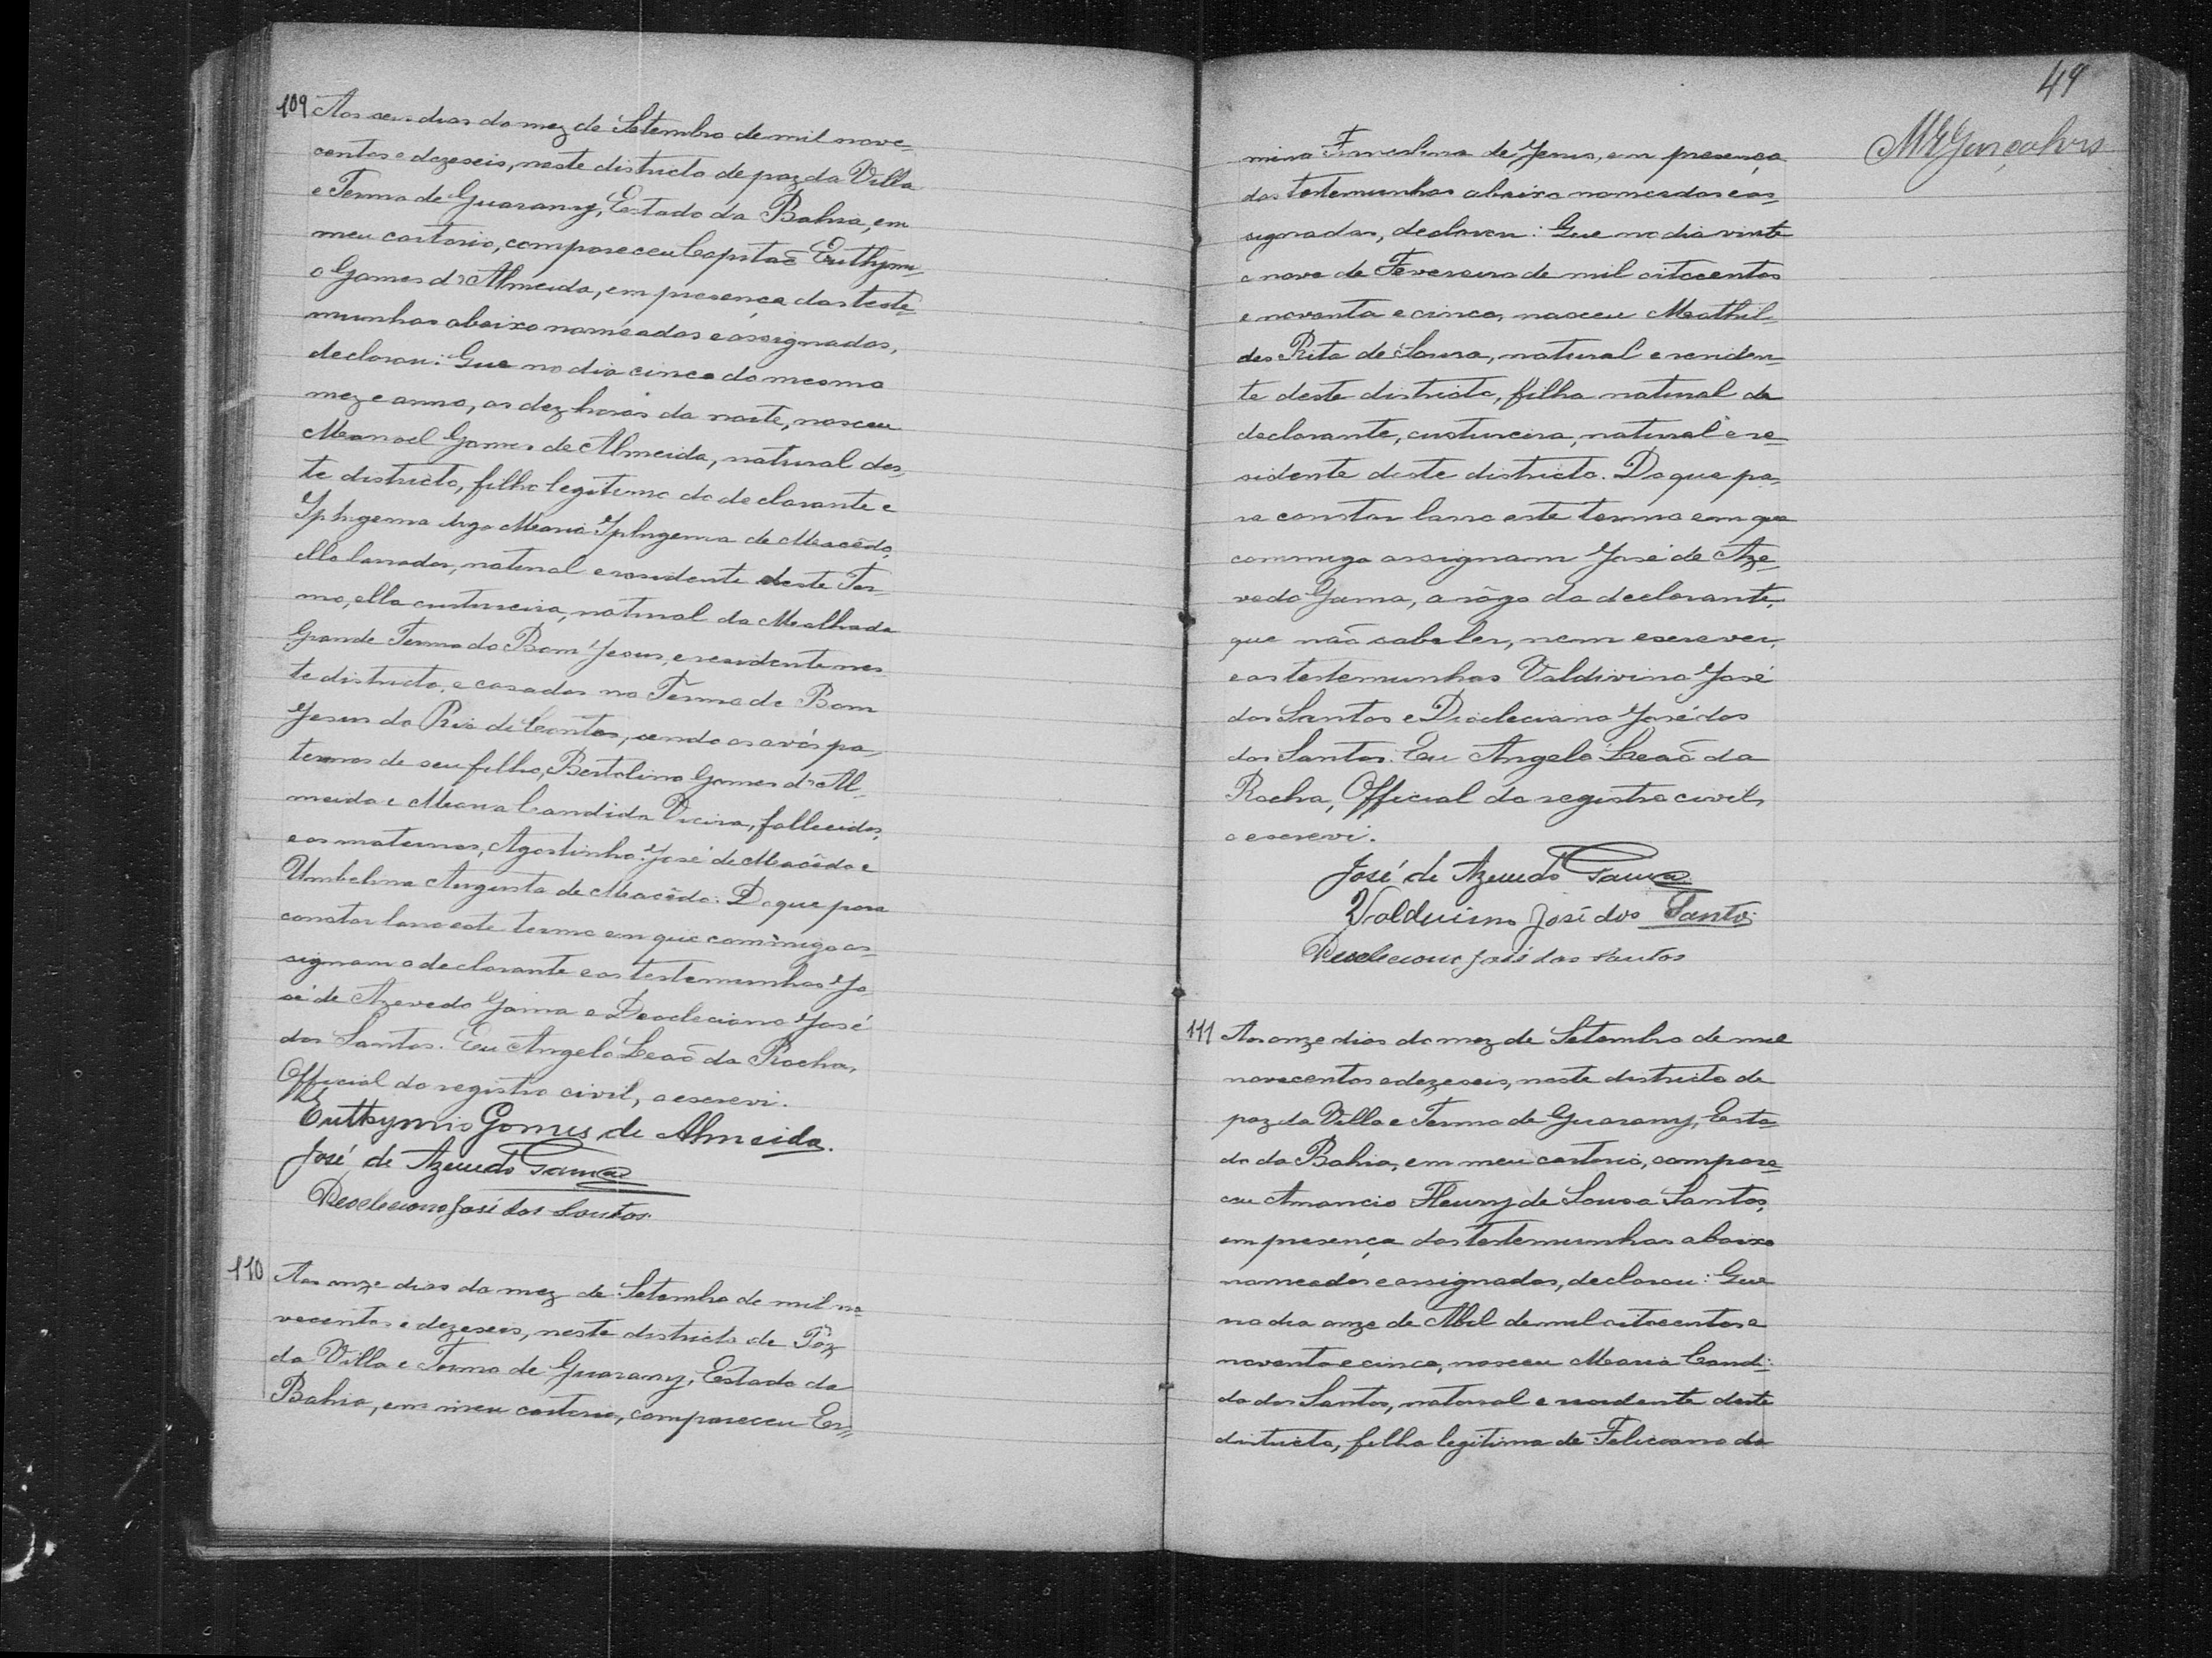 109 Aos seis dias do mez de Setembro de mil nove-
centos e dezeseis, neste districto de paz da Villa
e Termo de Guarany, Estado da Bahia, em
meu cartorio, compareceu Capitaõ Euthymi-
o Gomes d'Almeida, em presença das teste-
munhas abaixo nomeadas e assignadas,
declarou: Que no dia cinco do mesmo
mez e anno, as dez horas da noite, nasceu
Manoel Gomes de Almeida, natural des-
te districto, filho legitimo do declarante e
Iphigenia Maria Iphigenia de Macêdo,
elle lavrador, natural e residente deste Ter-
mo, ella custureira, natural da Malhada
Grande Termo do Bom Jesus, e residente nes-
te districto, e casados no Termo de Bom
Jesus do Rio de Contas, sendo os avós pa-
ternos de seu filho, Bertolino Gomes d'Al-
meida e Maria Candida Vieira, fallecidos,
e os maternos, Agostinho José de Macêdo e
Umbelina Augusta de Macêdo. Do que para
constar lavro este termo em que commigo as-
signam o declarante e as testemunhas Jo-
sé de Azevedo Gama e Deocleciano José
dos Santos. Eu Angelo Leaõ da Rocha,
Official do registro civil, o escrevi.
Euthymio Gomes de Almeida.
José de Azevedo Gama
Deocleciano José dos Santos
110 Aos onze dias do mez de Setembro de mil no-
vecentos e dezeseis, neste districto de Paz
da Villa e Termo de Guarany, Estado da
Bahia, em meu cartorio, compareceu Er-
49
MRGonçalves
mina de Jesus, em presença
das testemunhas abaixo nomeadas e as-
signadas, declarou: Que no dia vinte
e nove de Fevereiro de mil oitocentos
e noventa e cinco, nasceu Mathil-
des Rita de Sousa, natural e residen-
te deste districto, filha natural da
declarante, custureira, natural e re-
sidente deste districto. Do que pa-
ra constar lavro este termo em que
commigo assignam José de Aze-
vedo Gama, a rôgo da declarante,
que naõ sabe ler, nem escrever,
e as testemunhas Valdivino José
dos Santos e Deocleciano José dos
dos Santos. Eu Angelo Leaõ da
Rocha, Official do registro civil,
o escrevi.
José de Azevedo Gama
Valdivino José dos Santos
Deocleciano José dos Santos
111 Aos onze dias do mez de Setembro de mil
novecentos e dezeseis, neste districto de
paz da Villa e Termo de Guarany, Esta-
do da Bahia, em meu cartorio, compare-
ceu Amancio Fleury de Sousa Santos,
em presença das testemunhas abaixo
nomeadas e assignadas, declarou: Que
no dia onze de Abil de mil oitocentos e
noventa e cinco, nasceu Maria Candi-
da dos Santos, natural e residente deste
districto, filha legitima de Feliciano da